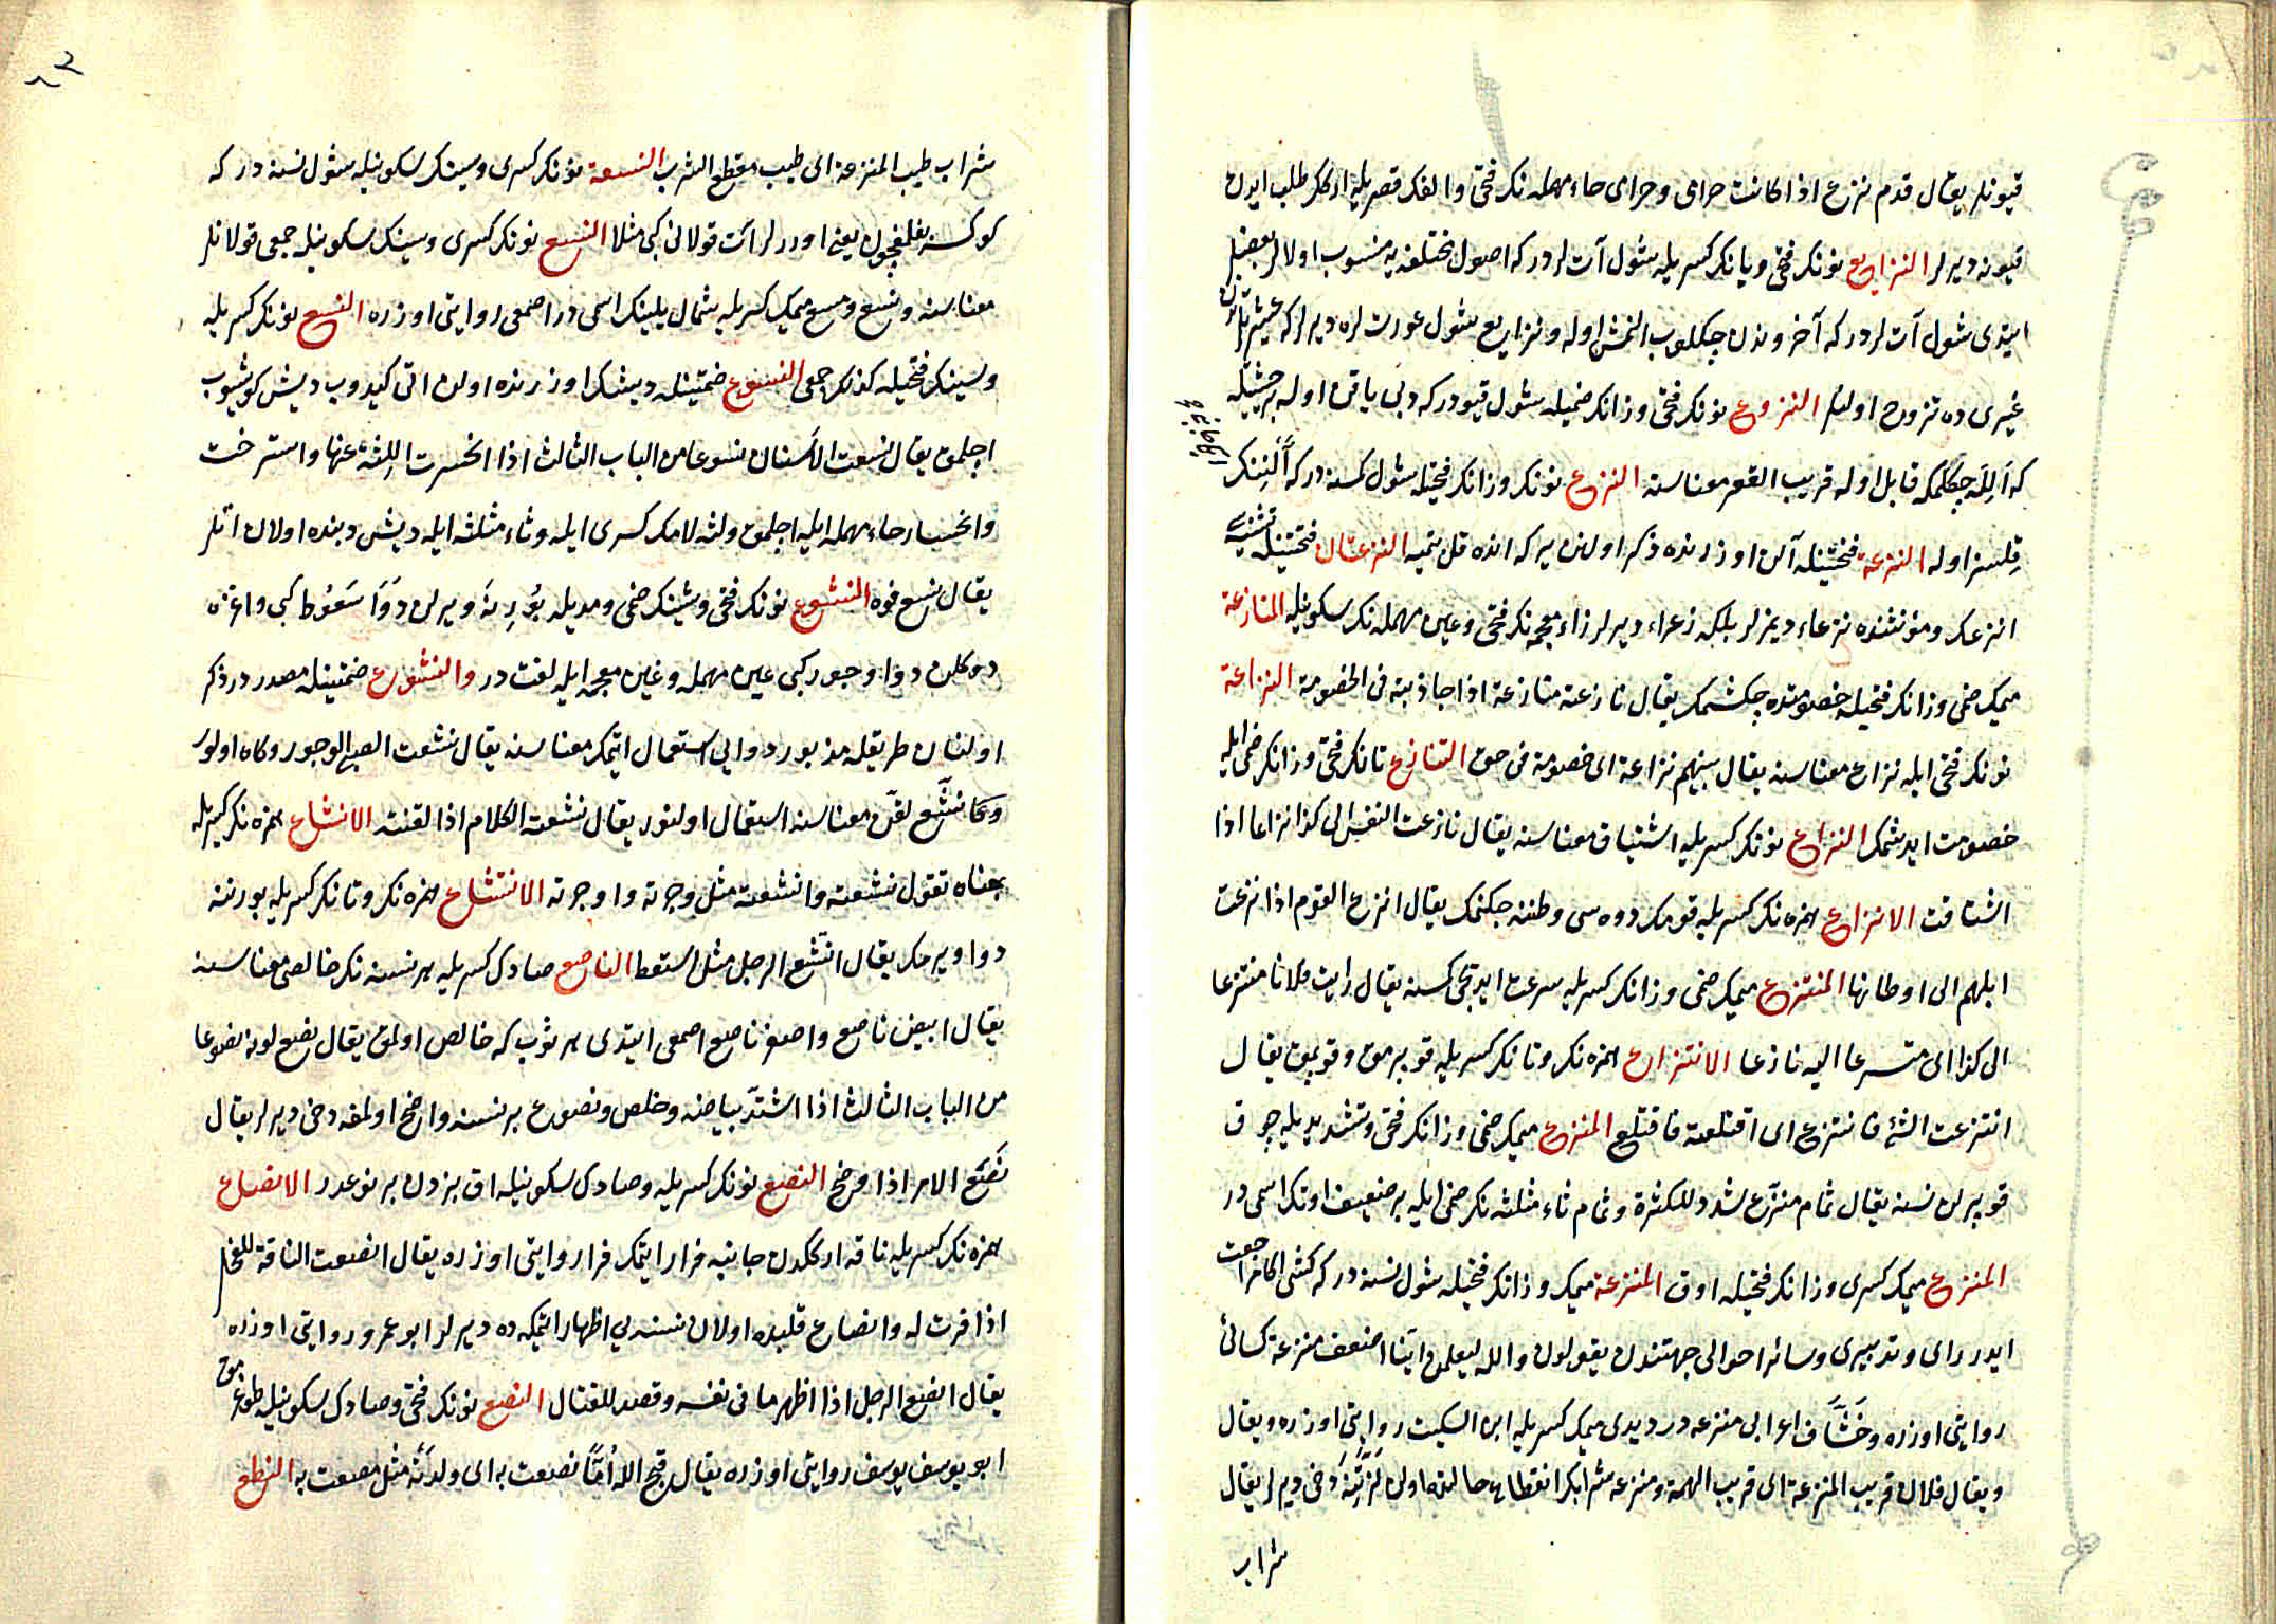 قیونلر یقال قدم نزع اذا کانت حرامی وحرامی حاء مهمله نك فتحی والفك قصریله ارکك طلب ایدن
قیونه دیرلر النزایع نونك فتحی ویانك کسریله شول آت لردر که اصول مختلفه یه منسوب اولالر بعضیلر
ایتدی شول آت لردر که آخروندن چکلوب النمش اوله ونزایع شول عورت لره دیرلر که عشیرتلرندن
غیری ده تزوج اولنلر النزوع نونك فتحی وزانك ضمیله شول قیودر که دبی یاقن اوله بر حیثیتله
که اَلِلَه چکلمکه قابل اوله قریب القعر معناسنه النزع نونك وزانك فتحیله شول کمسنه در که اَلْنِنك
قلسز اوله النزعة فتحتینله آلن اوزرنده ذکر اولنن یر که انده قل بتمیه النزعتان فتحتینله تثنیه سی
انزعك ومؤنثنده نزعاء دیمزلر بلکه زعراء دیرلر زاء معجمه نك فتحی وعین مهمله نك سکونیله المنازعة
میمك ضمی وزانك فتحیله خصومتده چکشمك یقال نازعته منازعة اذا جاذبته فی الخصومة النزاعة
نونك فتحی ایله نزاع معناسنه یقال بینهم نزاعة ای خصومة فی حق التنازع تانك فتحی وزانك ضمی ایله
خصومت ایدشمك النزاع نونك کسریله اشتیاق معناسنه یقال نازعت النفس الی کذا نزاعا اذا
اشتاقت الانزاع همزه نك کسریله قومك دوه سی وطننه چکنمك یقال انزع القوم اذا نزعت
ابلهم الی اوطانها المنتزع میمك ضمی وزانك کسریله سرعت ایدیجی کمسنه یقال رایت فلانا منتزعا
الی کذا ای متسرعا الیه نازعا الانتزاع همزه نك وتانك کسریله قوپرمق وقوپمق یقال
انتزعت الشئ فانتزع ای اقتلعته فاقتلع المنزع میمك ضمی وزانك فتحی وتشدیدیله چوق
قوپریلن نسنه یقال ثمام منزع شدد للکثرة وثمام ثاء مثلثه نك ضمی ایله بر ضعیف اوتك اسمی در
المنزع میمك کسری وزانك فتحیله اوق المنزعة میمك وزانك فتحیله شول نسنه در که کشی اکا مراجعت
ایدر رای وتدبیری وسائر احوالی جهتندن یقولون والله لیعلمن اینا اضعف منزعة کسائی
روایتی اوزره وخَشَّاف اعرابی منزعه در دیدی میمك کسریله ابن السکیت روایتی اوزره ویقال
ویقال فلان قریب المنزعة ای قریب الهمة ومنزعه شرابك انقطاعی حالنده اولن لزتنه دخی دیرلر یقال
شراب
شراب طیب المنزعة ای طیب مقطع الشرب النسعة نونك کسری وسینك سکونیله شول نسنه در که
یعنی اوررلر آت قولانی کبی مثلا النسع نونك کسری وسینك سکونیله جمعی قولانلر
معناسنه ونسع ومسع میمك کسریله شمال یلینك اسمی در اصمعی روایتی اوزره النسع نونك کسریله
وسینك فتحیله کذلك جمعی النسوع ضمتینله دیشلر اوزرنده اولن اتی کیدوب دیش کوشیوب
اچلمق یقال نسعت الاسنان نسوعا من الباب الثالث اذا انحسرت اللثة عنها واسترخت
وانحسار حاء مهمله ایله اچلمق ولثه لامك کسری ایله وثاء مثلثه ایله دیش دبنده اولان اتلر
یقال نسع فوه النشوع نونك فتحی وشینك ضمی ومدیله بورنه ویرلن دوا سعوط کبی واغزه
دوکلن دوا وجور کبی عین مهمله وغین معجمه ایله لغت در والنشوع ضمتینله مصدردر ذکر
اولنان طریقله مذبور دوایی استعمال ایتمك معناسنه یقال نشعت الصبی الوجور وکاه اولور
نشع لقن معناسنه استعمال اولنور یقال نشعت الکلام اذا لقنته الانشاع همزه نك کسریله
بمعناه تقول نشعته وانشعته مثل وجرته واوجرته الانتشاع همزه نك وتانك کسریله بورننه
دوا ویرمك یقال انتشع الرجل مثل استعط الناصع صادك کسریله هر نسنه نك خالصی معناسنه
یقال ابیض ناصع واصفر ناصع اصمعی ایتدی هر ثوب که خالص اولمق یقال نصع لونه نصوعا
من الباب الثالث اذا اشتد بیاضه وخلص ونصوع بر نسنه واضح اولمغه دخی دیرلر یقال
نَصَعَ الامر اذا وضح النصع نونك کسریله وصادك سکونیله اق بزدن بر نوعدر الانصاع
همزه نك کسریله ناقه ارککدن جانبنه فرار ایتمك فرا روایتی اوزره یقال انصعت الناقة للفحل
اذا قرت له وانصاع قلبده اولان نسنه یی اظهار ایتمکه ده دیرلر ابو عمرو روایتی اوزره
یقال انصع الرجل اذا اظهر ما فی نفسه وقصد للقتال النصع نونك فتحی وصادك سکونیله طوغرمق
ابو یوسف یوسف روایتی اوزره یقال قبح الله اُمًّا نصعت به ای ولدته مثل مصعت به النطع